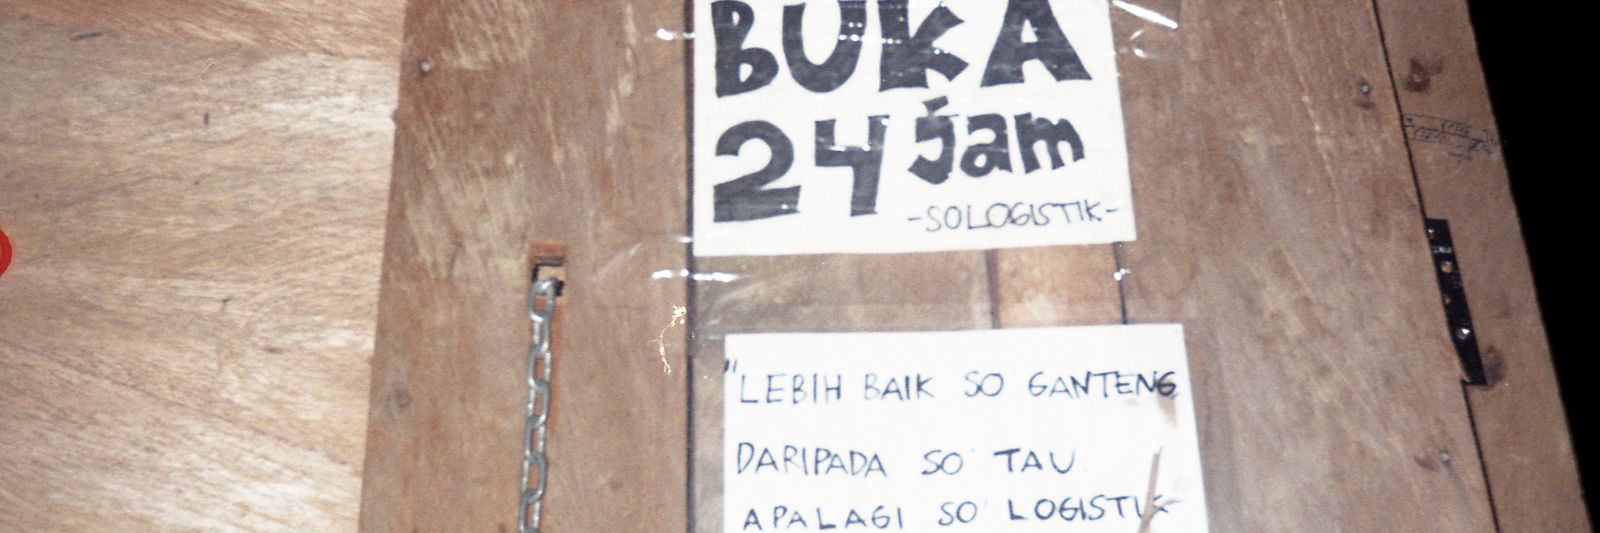 BUKA
24 jam
-SOLOGISTIK-
"LEBIH BAIK SO GANTENG
DARIPADA SO' TAU
APALAGI SO' LOGISTIK